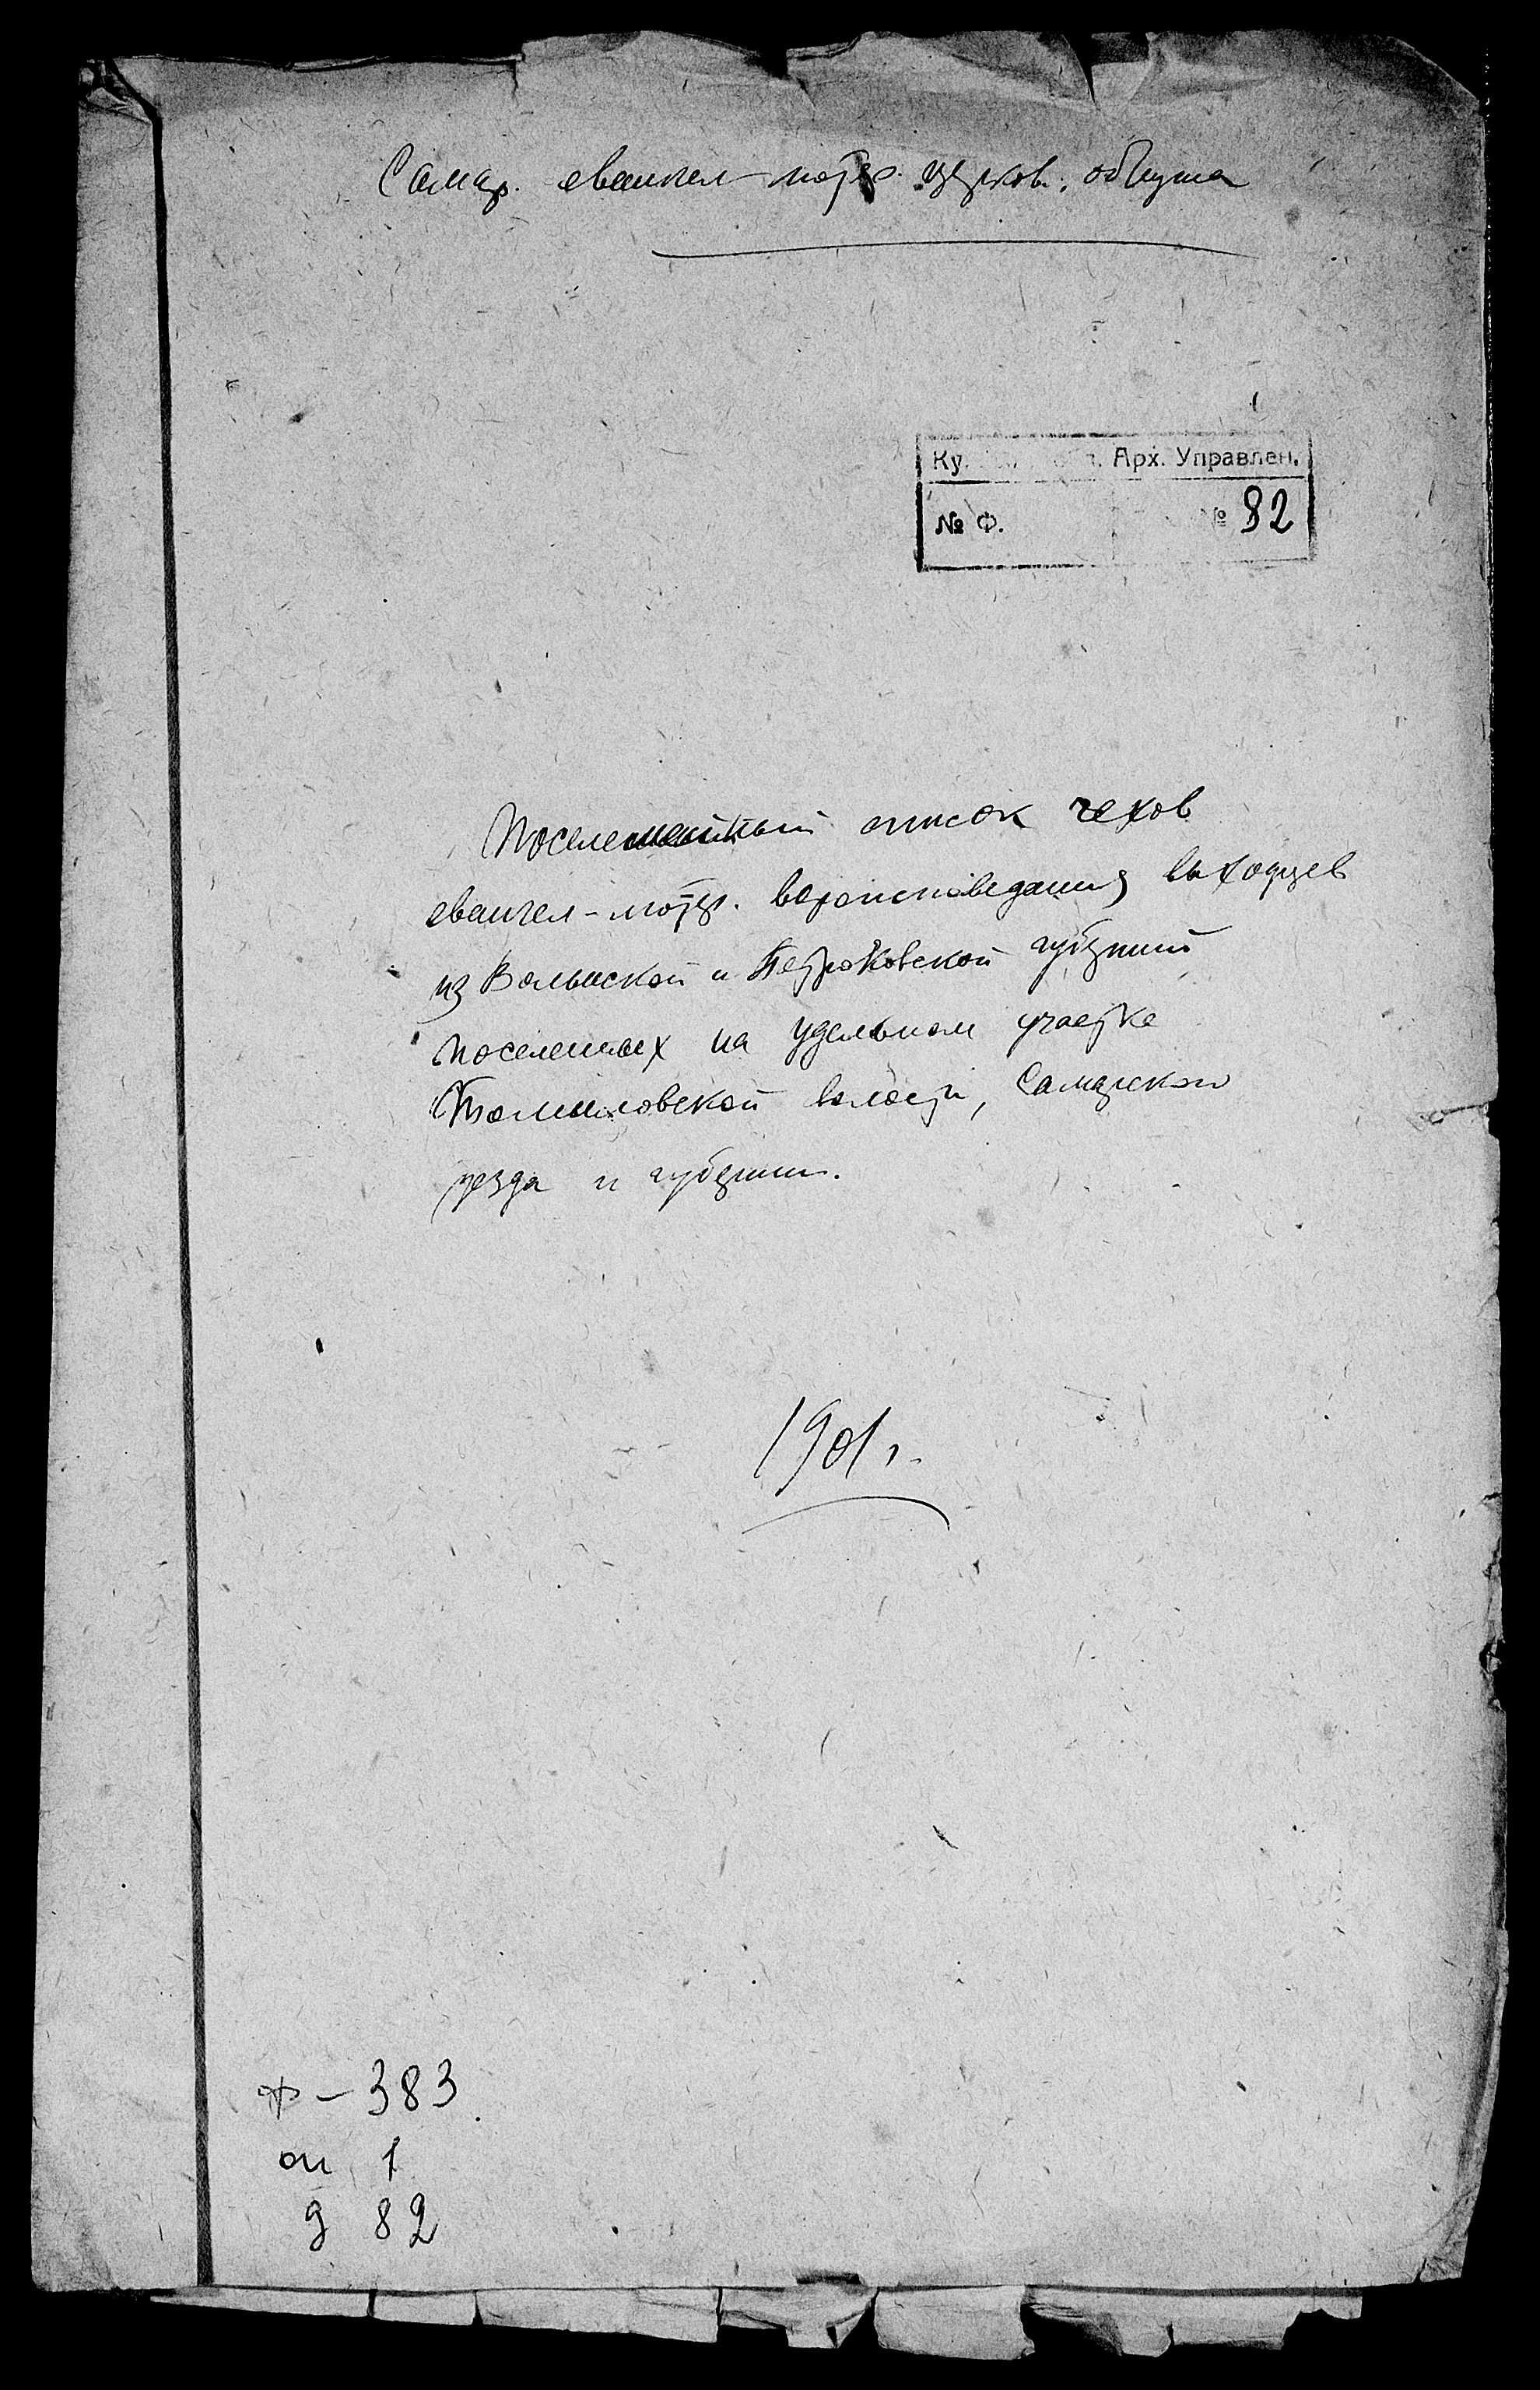 Самар. евангел-лютер. церков. община
Арх. Управлен.
№ Ф. № 82
список чехов
евангел-лютер. вероисповедания выходцев
из Волынской и Петроковской губерний
поселенных на удельном участке
Томиловской волости, Самарского
уезда и губернии.
1901 г.
ф – 383
оп 1
д 82